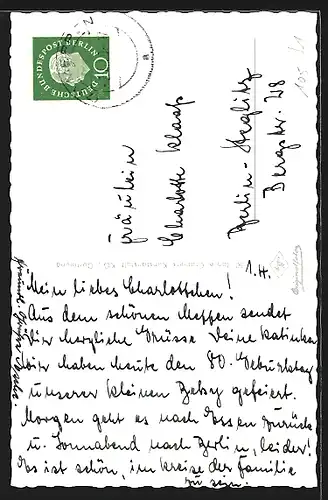 DEUTSCHE BUNDESPOST BERLIN
10
105 / 1
Fräulein
Charlotte Klaass
Berlin-Steglitz
Bergstr. 28
1. H.
Mein liebes Charlottchen!
Aus dem schönen Meppen sendet
Dir herzliche Grüsse Deine Katinka
wir haben heute den 80. Geburtstag
unserer kleinen Betsy gefeiert.
Morgen geht es nach Essen zurück
u. Sonnabend nach Berlin, leider!
Es ist schön, im Kreise der Familie
zu sein.